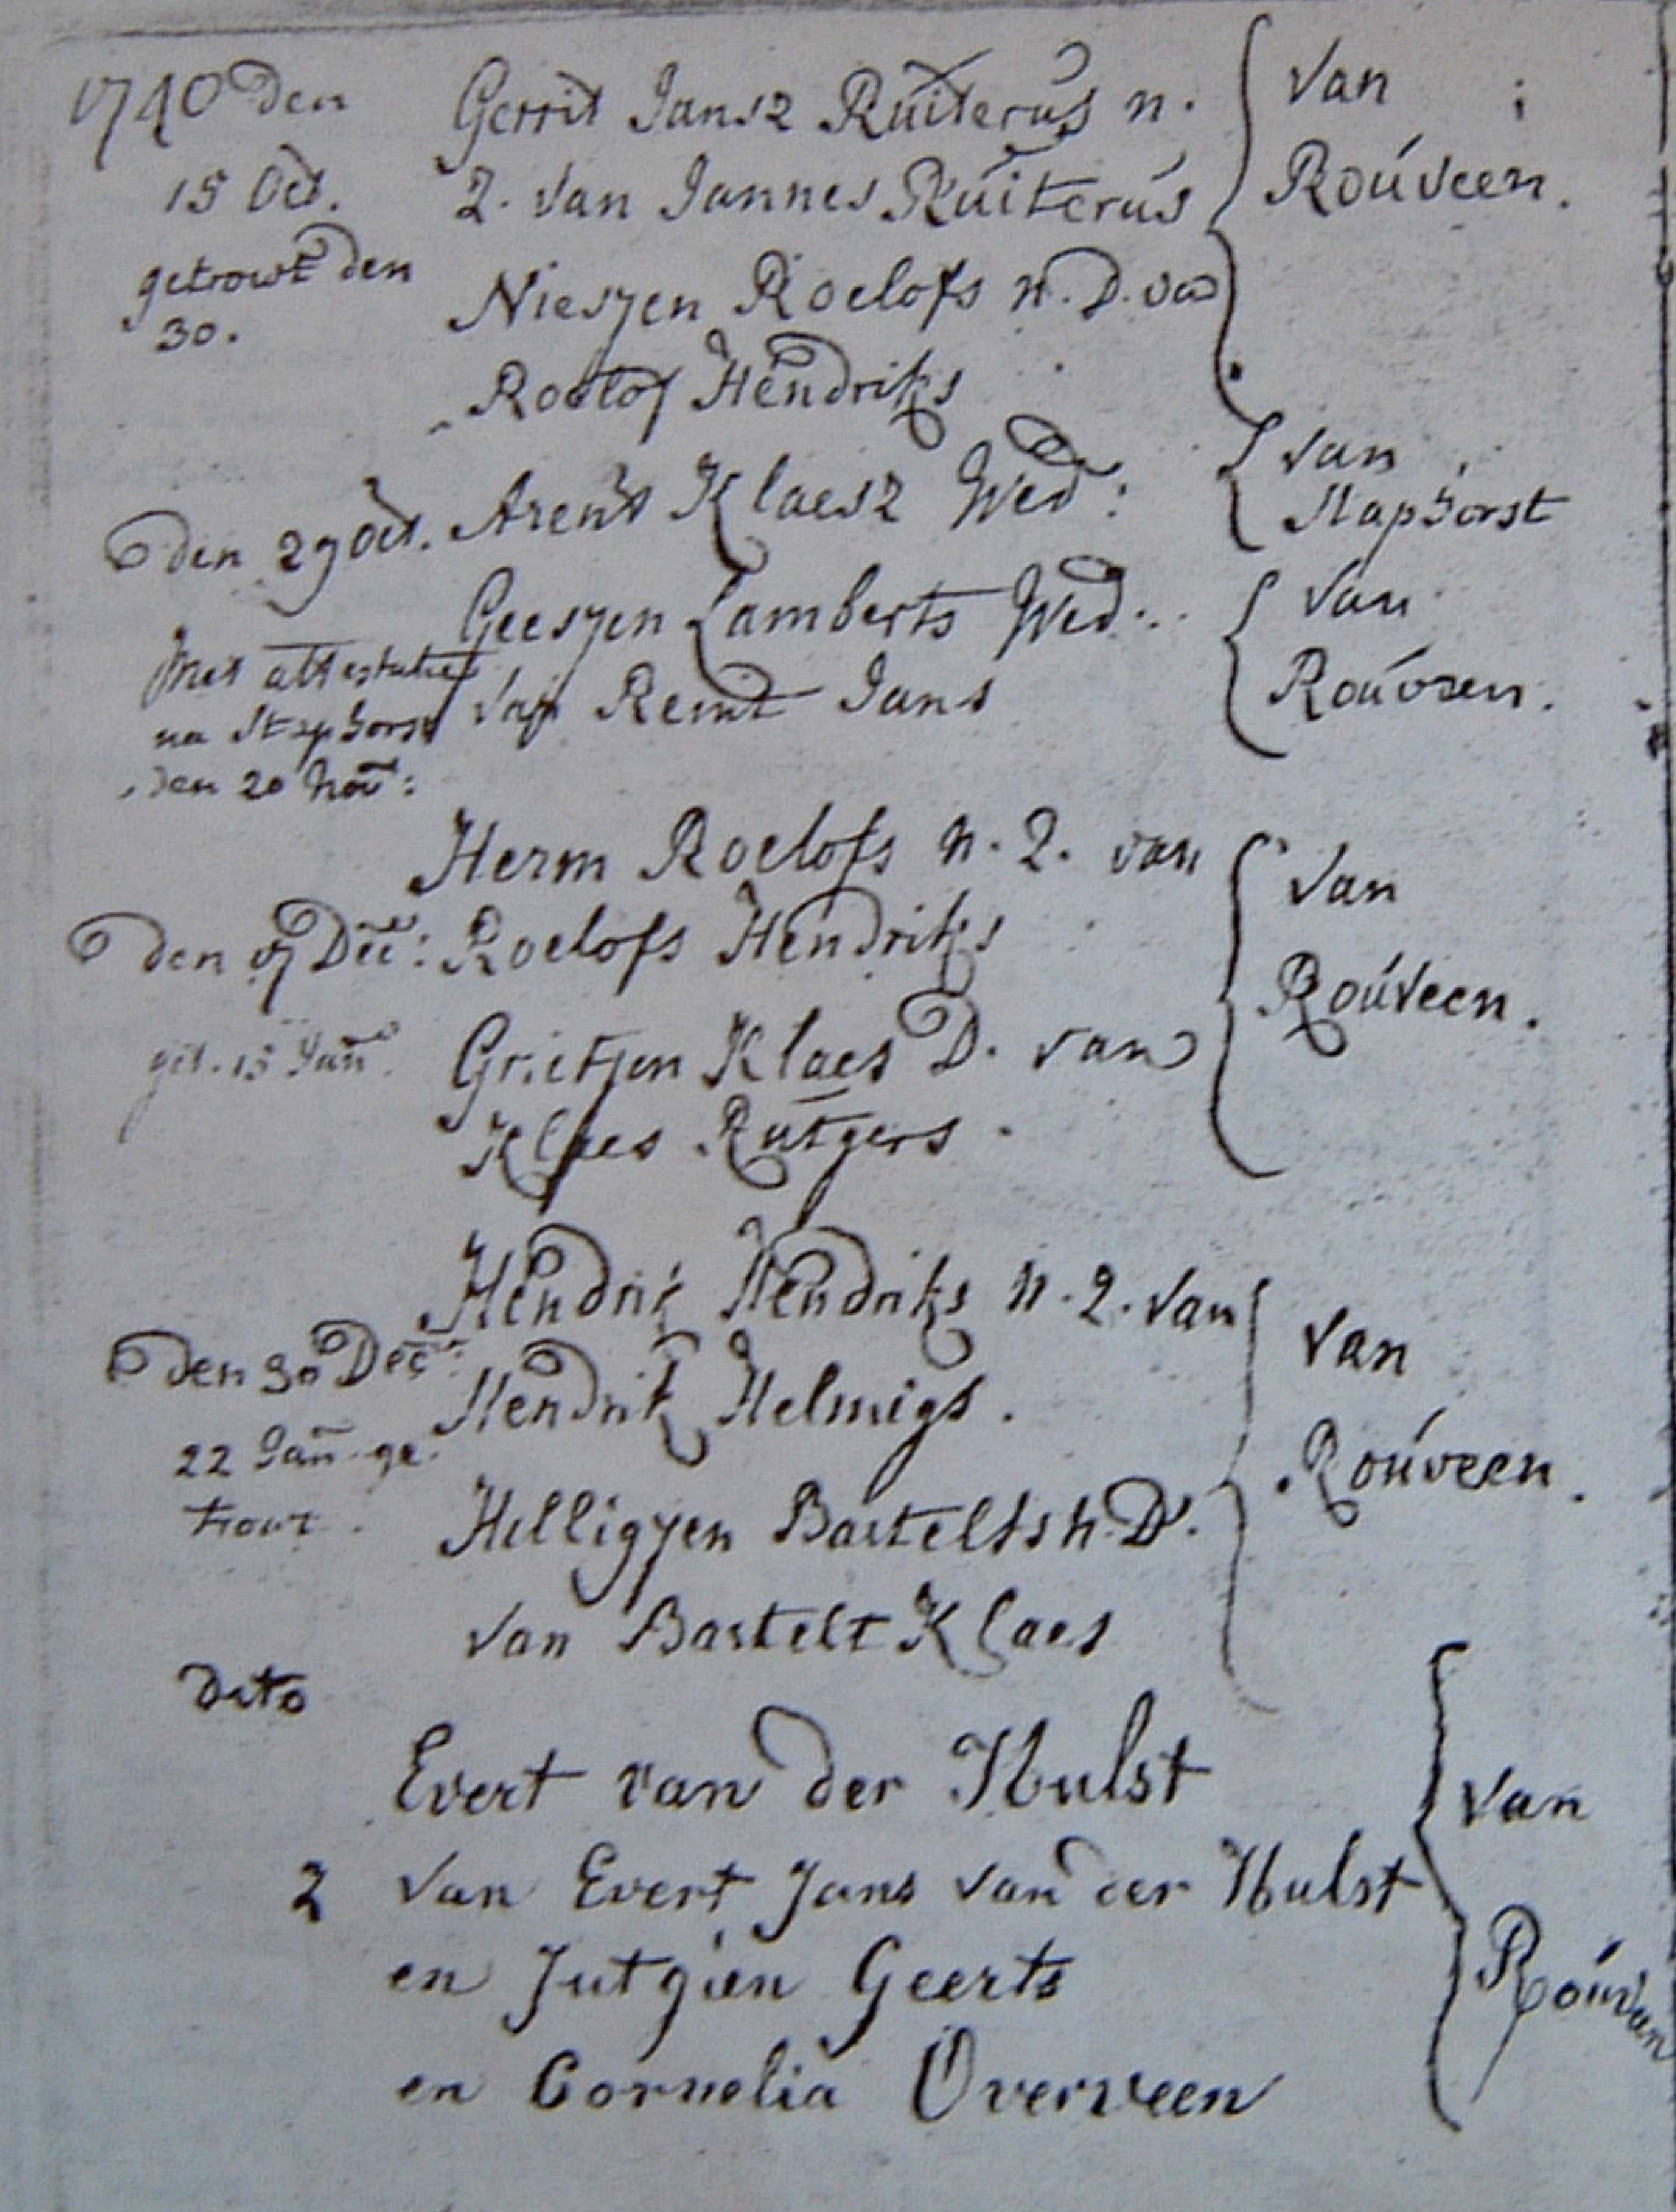 1740 den Gerrit Jansz Ruiterus n. Van
15 Oct. Z. van Jannes Ruiterus Rouveen.
getrowt den Niesjen Roelofs n. D. van
30. Roelof Hendriks
den 29 Oct. Arent Klaesz Wed: van Staphorst
Geesjen Lamberts Wed. van
met attestatie van Remt Jans Rouveen.
na Staphorst
den 20 Nov:
Herm Roelofs n. Z. van Van
den 17 Dec: Roelofs Hendriks Rouveen.
get. 15 Jan. Grietjen Klaes D. van
Klaes Rutgers.
Hendrik Hendriks n. Z. van Van
den 30 Dec: Hendrik Helmigs. Rouveen.
22 Jan. ge
trowt. Hilligjen Bartelts n. D.
van Bartelt Klaes
dito
Evert van der Hulst van
Z van Evert Jans van der Hulst
en Jutgien Geerts Rouveen
en Cornelia Overveen